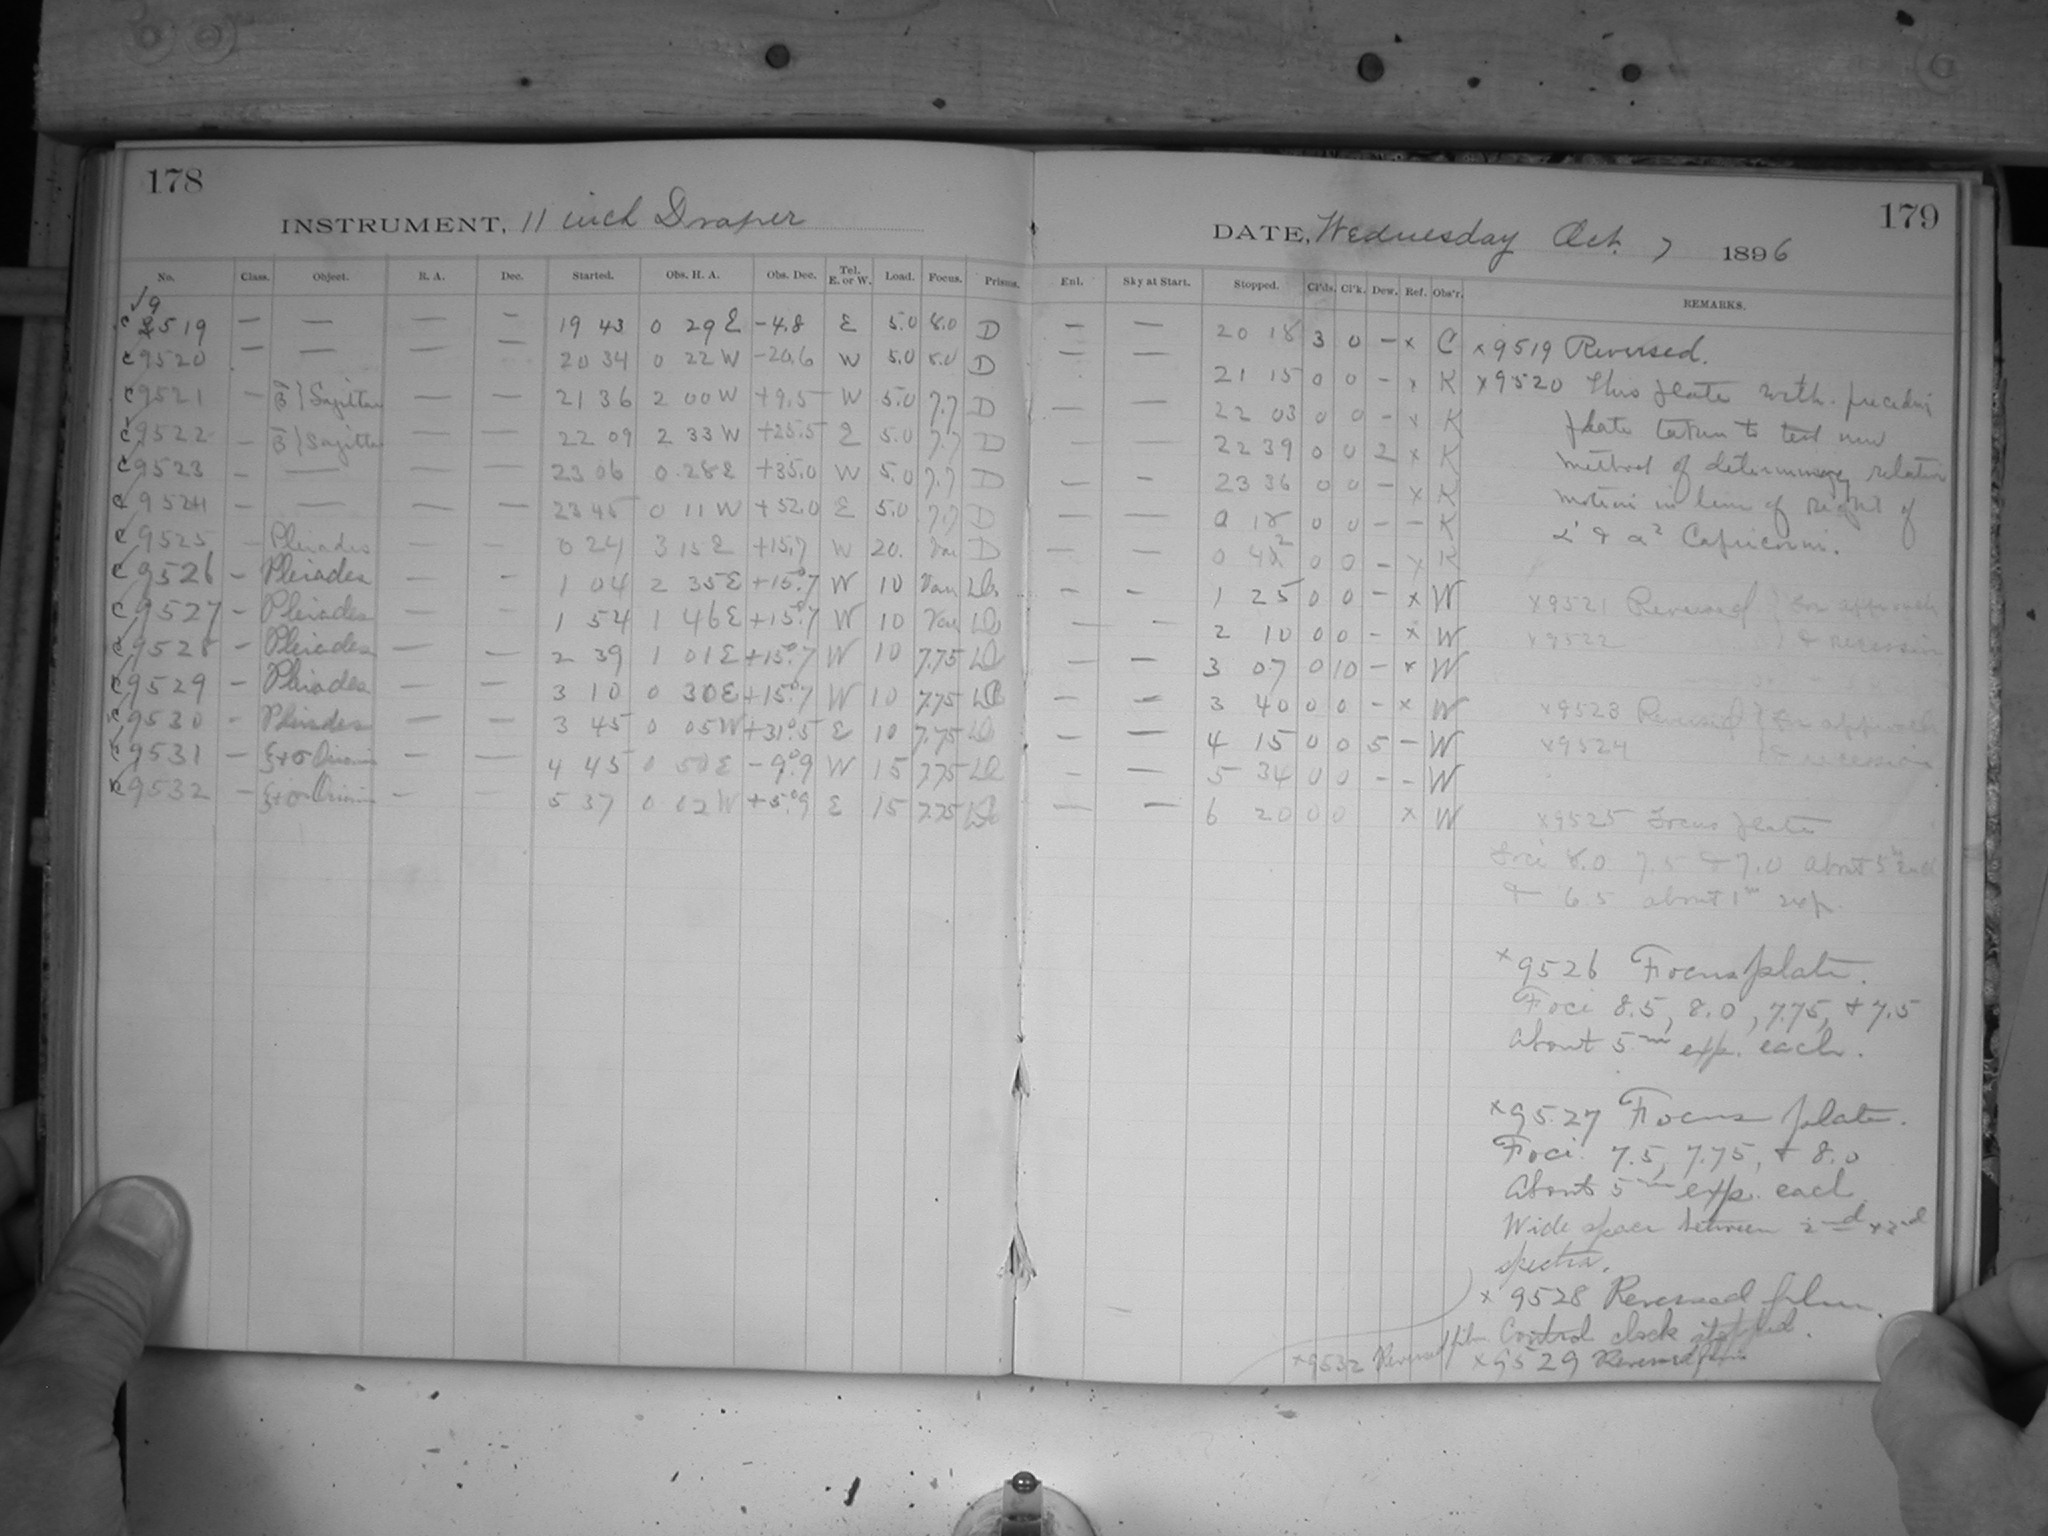 178
INSTRUMENT, 11 inch Draper
No. Class. Object. R. A. Dec. Started. Obs. H. A. Obs. Dec. Tel. E. or W. Load. Focus. Prisms.
c 9519 — — — — 19 43 0 29 E -4.8 E 5.0 8.0 D
c 9520 — — — — 20 34 0 22 W -20.6 W 5.0 8.0 D
c 9521 — Sagittae — — 21 36 2 00 W +9.5 W 5.0 7.7 D
c 9522 — Sagittae — — 22 09 2 33 W +25.5 E 5.0 7.7 D
c 9523 — — — — 23 06 0 28 E +35.0 W 5.0 7.7 D
c 9524 — — — — 23 45 0 11 W +52.0 E 5.0 7.7 D
c 9525 — Pleiades — — 0 24 3 15 E +15.7 W 20. Var D
c 9526 — Pleiades — — 1 04 2 35 E +15°.7 W 10 Var
c 9527 — Pleiades — — 1 54 1 46 E +15°.7 W 10 Var
c 9528 — Pleiades — — 2 39 1 01 E +15°.7 W 10 7.75
c 9529 — Pleiades — — 3 10 0 30 E +15°.7 W 10 7.75
c 9530 — Pleiades — — 3 45 0 05 W +31°.5 E 10 7.75
c 9531 — ξ+σ Orionis — — 4 45 0 50 E -9°.9 W 15 7.75
c 9532 — ξ+σ Orionis — — 5 37 0 02 W +5°.9 E 15 7.75
179
DATE, Wednesday Oct. 7 1896
Enl. Sky at Start. Stopped. Cl'ds. Cl'k. Dew. Ref. Obs'r. REMARKS.
— — 20 18 3 0 - x C
— — 21 15 0 0 - x K
— — 22 03 0 0 - x K
— — 22 39 0 0 2 x K
— — 23 36 0 0 - x K
— — 0 18 0 0 - - K
— — 0 42 0 0 - x K
— — 1 25 0 0 - x W
— — 2 10 0 0 - x W
— — 3 07 0 10 - x W
— — 3 40 0 0 - x W
— — 4 15 0 0 5 - W
— — 5 34 0 0 - - W
— — 6 20 0 0 x W
x9519 Reversed.
x9520 This plate with preceding
plate taken to test new
method of determining relative
motion in line of sight of
α' & α² Capricorni.
x9521 Reversed } for approach
x9522 } & recession
x9523 Reversed } for approach
x9524 } & recession
x9525 Focus plate
Foci 8.0 7.5 & 7.0 about 5m each
& 6.5 about 1m exp.
x9526 Focus plate.
Foci 8.5, 8.0, 7.75, + 7.5
About 5m exp. each.
x9527 Focus plate.
Foci 7.5, 7.75, + 8.0
About 5m exp. each
Wide space between 2nd + 3rd
spectra.
x 9528 Reversed film.
Control clock stopped.
x9529 Reversed film
x9532 Reversed film